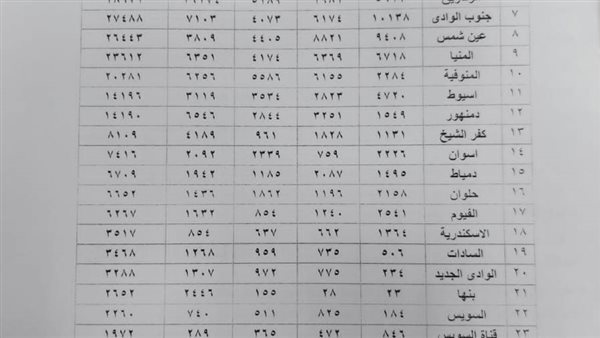 ٧ جنوب الوادى ١٠١٣٨ ٦١٧٤ ٤٠٧٣ ٧١٠٣ ٢٧٤٨٨
٨ عين شمس ٩٤٠٨ ٨٨٢١ ٤٤٠٥ ٣٨٠٩ ٢٦٤٤٣
٩ المنيا ٦٧١٨ ٦٣٦٩ ٤١٧٤ ٦٣٥١ ٢٣٦١٢
١٠ المنوفية ٢٢٨٤ ٦١٥٥ ٥٥٨٦ ٦٢٥٦ ٢٠٢٨١
١١ اسيوط ٤٧٢٠ ٢٨٢٣ ٣٥٣٤ ٣١١٩ ١٤١٩٦
١٢ دمنهور ١٥٤٩ ٣٢٥١ ٢٨٤٤ ٦٥٤٦ ١٤١٩٠
١٣ كفر الشيخ ١١٣١ ١٨٢٨ ٩٦١ ٤١٨٩ ٨١٠٩
١٤ اسوان ٢٢٢٦ ٧٥٩ ٢٣٣٩ ٢٠٩٢ ٧٤١٦
١٥ دمياط ١٤٩٥ ٢٠٨٧ ١١٨٥ ١٩٤٢ ٦٧٠٩
١٦ حلوان ٢١٥٨ ١١٩٦ ١٨٦٢ ١٤٣٦ ٦٦٥٢
١٧ الفيوم ٢٥٤١ ١٢٤٠ ٨٥٤ ١٦٣٢ ٦٢٦٧
١٨ الاسكندرية ١٣٦٤ ٦٦٢ ٦٣٧ ٨٥٤ ٣٥١٧
١٩ السادات ٥٠٦ ٧٣٥ ٩٥٩ ١٢٦٨ ٣٤٦٨
٢٠ الوادى الجديد ٢٣٤ ٧٧٥ ٩٧٢ ١٣٠٧ ٣٢٨٨
٢١ بنها ٢٣ ٢٨ ١٥٥ ٢٤٤٦ ٢٦٥٢
٢٢ السويس ١٨٤ ٨٢٥ ٥١١ ٧٤٠ ٢٢٦٠
٢٣ قناة السويس ٨٤٦ ٤٧٢ ٣٦٥ ٢٨٩ ١٩٧٢